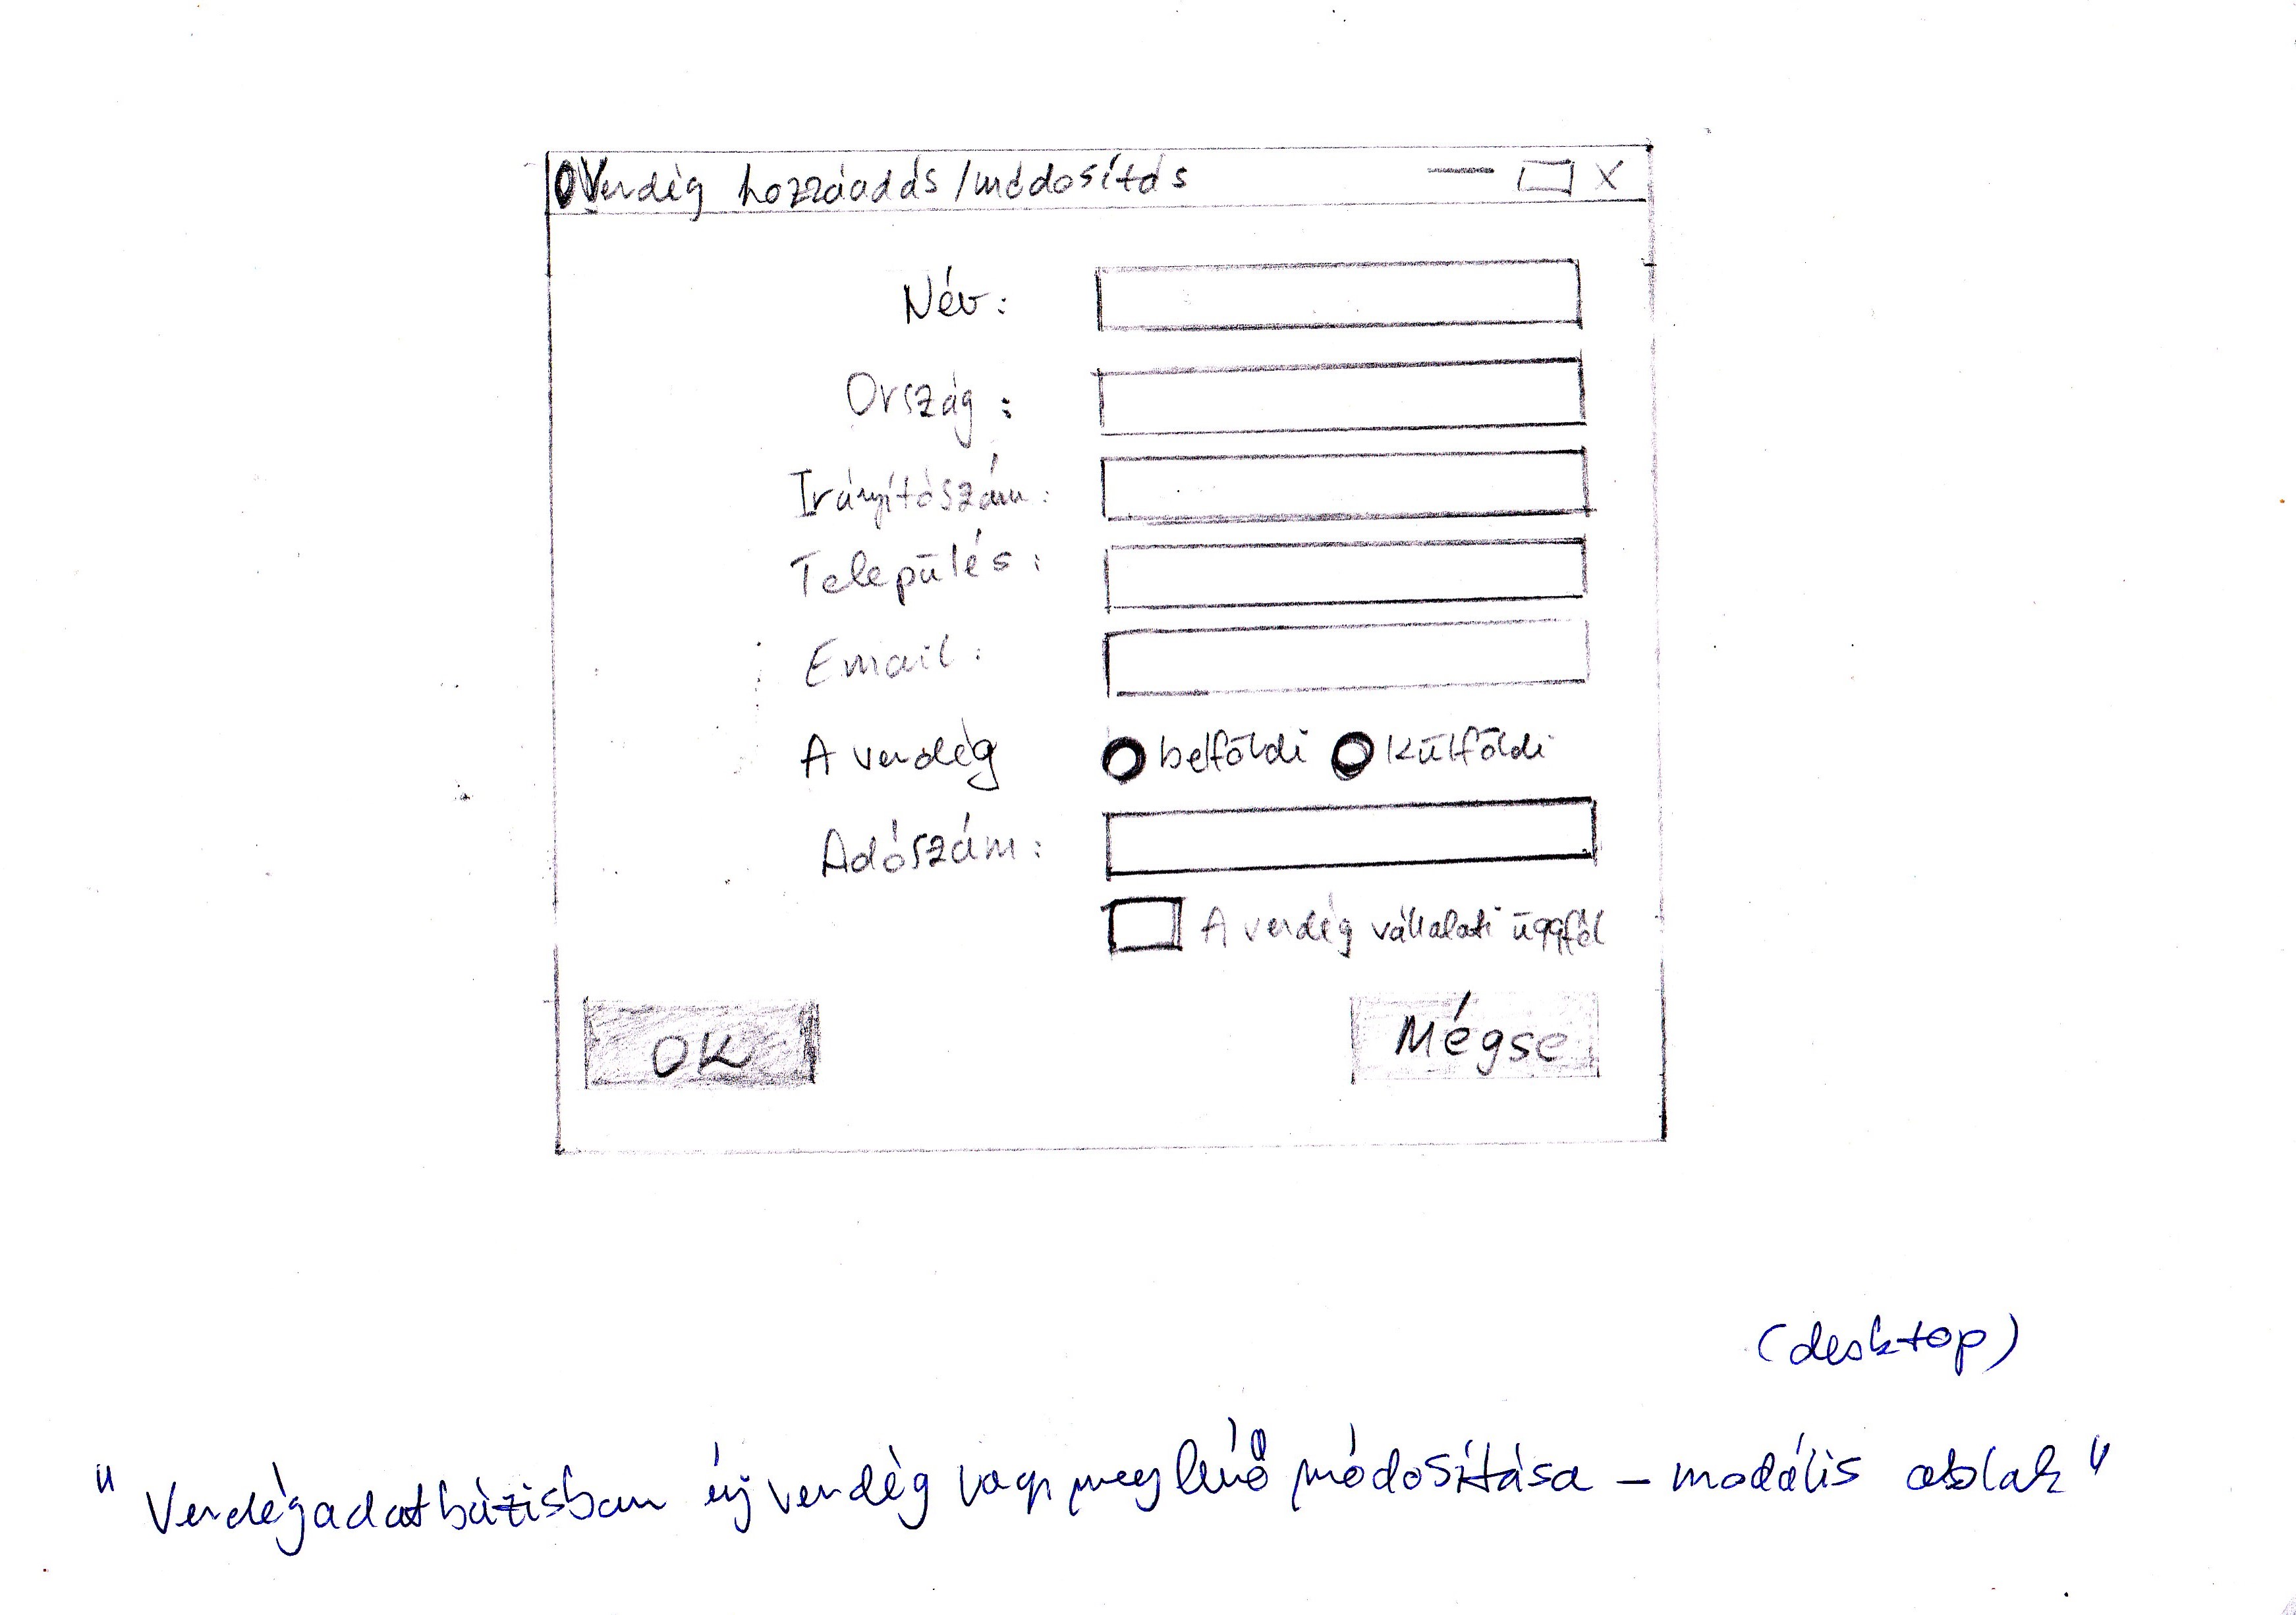 Vendég hozzáadás/módosítás — X
Név:
Ország:
Irányítószám:
Település:
Email:
A vendég belföldi külföldi
Adószám:
A vendég vállalati ügyfél
OK Mégse
(desktop)
"Vendégadatbázisban új vendég vagy meglévő módosítása – modális ablak"